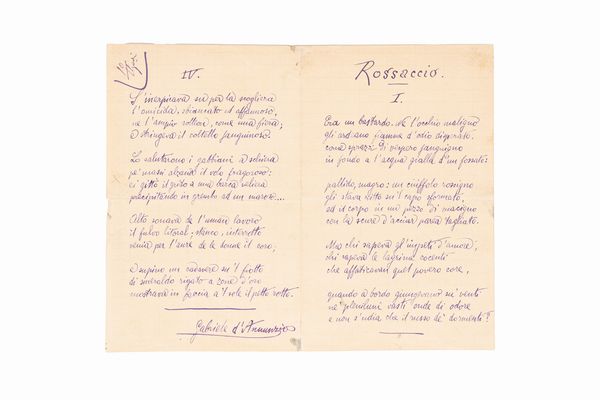 IV.
S'inerpicava su per la scogliera
l'omicida, sbiancato ed affannoso,
ne l'ampia rossor, come una fiera;
e stringeva il coltello sanguinoso.
Lo salutarono i gabbiani a schiera
pe' massi alzando il volo fragoroso:
ei gittò il grido a una barca veliera
precipitando in grembo ad un maroso...
Alto sonava de l'umano lavoro
il fulvo litoral; stanco, interrotto
venia per l'aure de le donne il coro;
e supino un cadavere su 'l fiotto
di smeraldo rigato a zone d'oro
mostrava in faccia a 'l sole il petto rotto.
Gabriele d'Annunzio
Rossaccio.
I.
Era un bastardo. Ne l'occhio maligno
gli ardeano fiamme d'odio disperato,
come sprazzi di vespero sanguigno
in fondo a l'acqua gialla d'un fossato:
pallido, magro: un ciuffolo rosigno
gli stava ritto su 'l capo sformato,
ed il corpo in un pezzo di macigno
con la scure d'acciar parea tagliato.
Ma chi sapeva gl'impeti d'amore,
chi sapeva le lagrime cocenti
che affaticavan quel povero core,
quando a bordo giungevano su' venti
ne' plenilunî vasti onde di odore
e non s'udia che il russo de' dormenti?